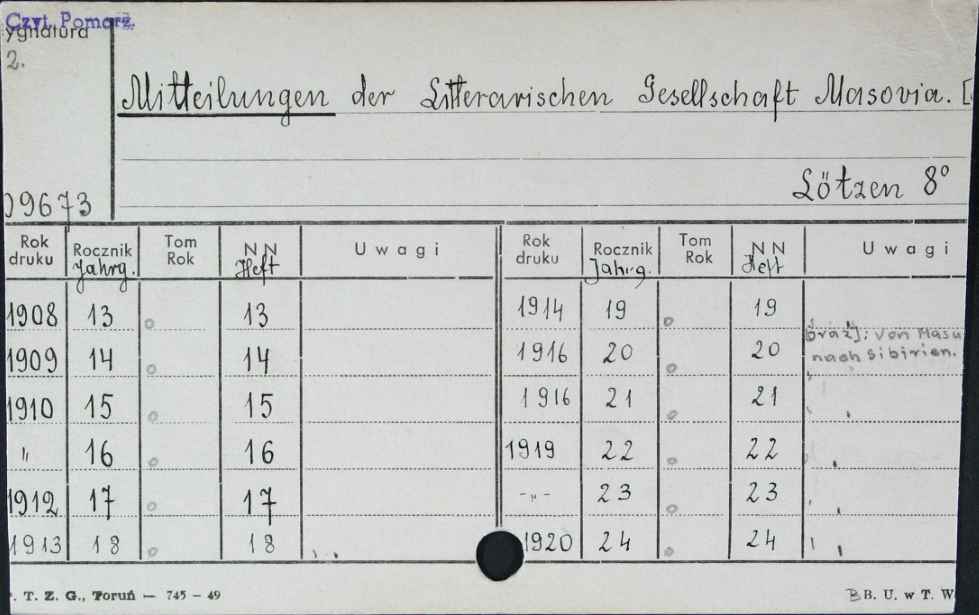 Czyt. Pomorz.
ygnatura
2.
Mitteilungen der Litterarischen Gesellschaft Masovia. [
Lötzen 8°
09673
Rok druku Rocznik Jahrg. Tom Rok NN Heft Uwagi Rok druku Rocznik Jahrg. Tom Rok NN Heft Uwagi
1908 13 13 1914 19 19
1909 14 14 1916 20 20 : von Masu nach Sibirien.
1910 15 15 1916 21 21
" 16 16 1919 22 22
1912 17 17 -"- 23 23
1913 18 18 1920 24 24
. T. Z. G., Toruń — 745 – 49
B. U. w T. W